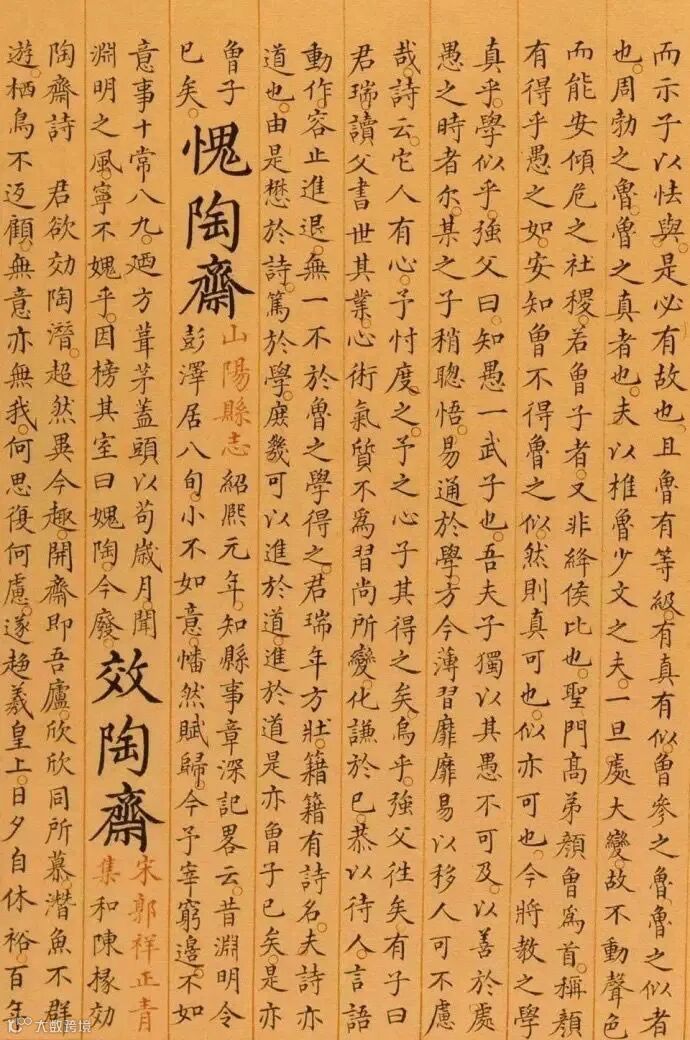 而示子以怯與。是必有故也。且魯有等級。有真有似。曾參之魯。魯之似者
也。周勃之魯。魯之真者也。夫以椎魯少文之夫。一旦處大變。故不動聲色
而能安傾危之社稷。若曾子者。又非絳侯比也。聖門高弟顏曾爲首。稱顏
有得乎愚之如。安知曾不得魯之似。然則真可也。似亦可也。今將教之學
真乎。學似乎。強父曰。知愚一武子也。吾夫子獨以其愚不可及。以善於處
愚之時者尔。某之子稍聰悟。易通於學。方今薄習靡靡。易以移人。可不慮
哉。詩云。它人有心。予忖度之。予之心子其得之矣。烏乎。強父徃矣。有子曰
君瑞。讀父書。世其業。心術氣質不爲習尚所變。化謙於已。恭以待人。言語
動作。容止進退。無一不於魯之學得之。君瑞年方壯。籍籍有詩名。夫詩亦
道也。由是懋於詩。篤於學。庻幾可以進於道。進於道是亦曾子已矣。是亦
曾子
已矣。
愧陶齋
山陽縣志 紹熙元年。知縣事章深記畧云。昔淵明令
彭澤居八旬。小不如意。幡然賦歸。今予宰窮邊。不如
意事十常八九。廼方葺茅蓋頭。以苟歲月。聞
淵明之風。寧不媿乎。因榜其室曰媿陶。今廢。
效陶齋
宋郭祥正青
集 和陳掾効
陶齋詩 君欲効陶潛。超然異今趣。開齋即吾廬。欣欣同所慕。潛魚不群
遊。栖鳥不返顧。無意亦無我。何思復何慮。遂趍羲皇上。日夕自休裕。百年
大数跨境